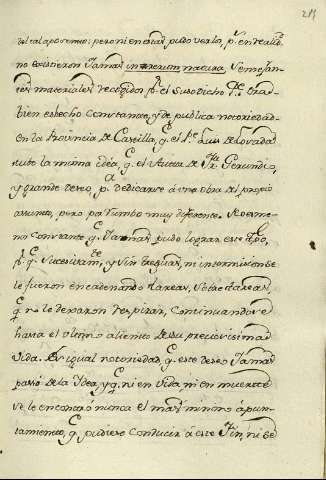 215
del tal aposento: pero ni en casa pudo verlo, pr. en realid.
no existieron Jamas in rerum natura. Semejan-
tes materiales recogidos pr. el susodicho Pe.
bien es hecho constante, y de publica notoriedad
en la Provincia de Castilla, q. el Pe. Luis de Losada
tubo la misma idea, q. el Autor de Fr. Gerundio,
y grande deseo, pa. dedicarse á una obra del propio
assunto, pero por rumbo muy diferente. No es me-
no constante q. Jamas pudo lograr este
pr. q. sucesivamte. y sin treguas, ni intermision se
le fueron encadenando tareas, sobre tareas,
q. no le dexaron respirar, continuandose
hasta el ultimo aliento de su preciosisima
vida. Es igual notoriedad, q. este deseo Jamas
passó de la Idea, y q. ni en vida, ni en muerte
se le encontró nunca el mas minimo apun-
tamiento, q. pudiese conducir á este fin, ni se